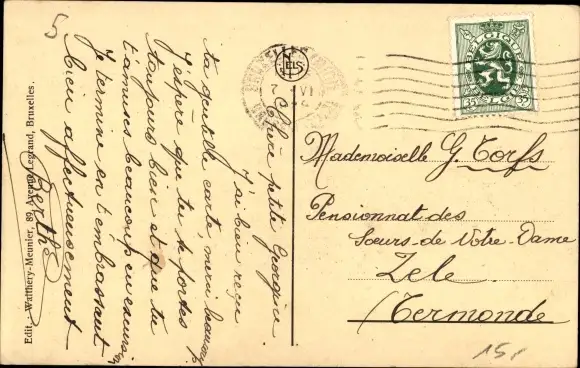 5
Chère petite Georgine.
J'ai bien reçu
ta gentille carte, merci beaucoup
J'espère que tu te portes
toujours bien et que tu
t'amuses beaucoup en
Je termine en t'embrassant
bien affectueusement
Berthe
Edit. Watthery-Meunier, 89, Avenue Legrand, Bruxelles.
ELS
BELGIQUE
35
35
BELGIE
Mademoiselle G. Torfs
Pensionnat des
Sœurs-de Notre-Dame
Zele.
(Termonde)
15,